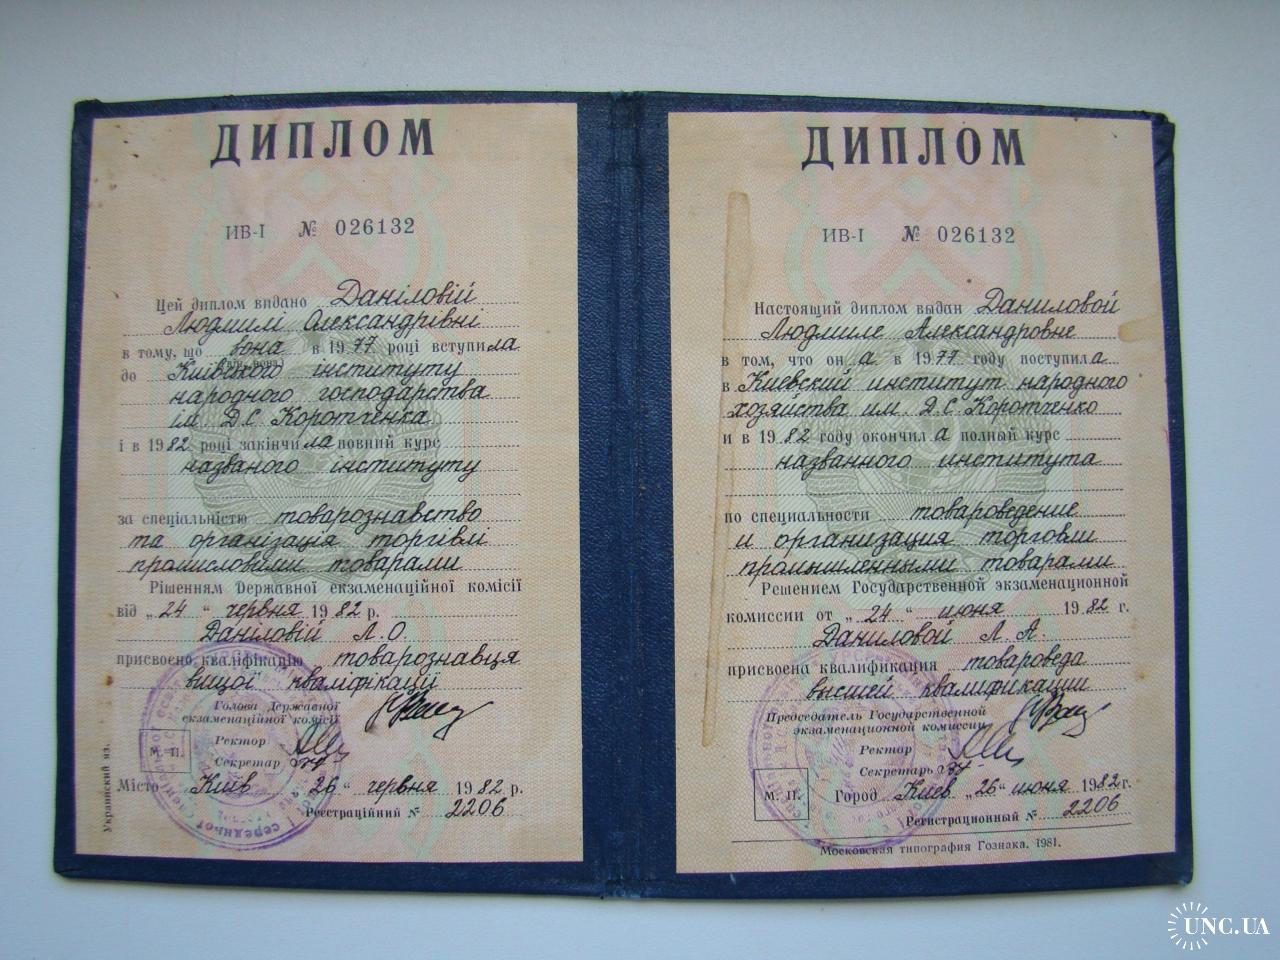 ДИПЛОМ
ИВ-I № 026132
Цей диплом видано Даніловій
Людмилі Олександрівні
в тому, що вона в 1977 році вступила
до Київського інституту
народного господарства
ім. Д.С. Коротченка
і в 1982 році закінчила повний курс
названого інституту
за спеціальністю товарознавство
та організація торгівлі
промисловими товарами
Рішенням Державної екзаменаційної комісії
від „24“ червня 1982 р.
Даніловій Л.О.
присвоєно кваліфікацію товарознавця
вищої кваліфікації
Голова Державної
екзаменаційної комісії
Ректор
М. П.
Секретар
Місто Київ „26“ червня 1982 р.
Реєстраційний № 2206
Украинский яз.
ДИПЛОМ
ИВ-I № 026132
Настоящий диплом выдан Даниловой
Людмиле Александровне
в том, что она в 1977 году поступила
в Киевский институт народного
хозяйства им. Д.С. Коротченко
и в 1982 году окончила полный курс
названного института
по специальности товароведение
и организация торговли
промышленными товарами
Решением Государственной экзаменационной
комиссии от „24“ июня 1982 г.
Даниловой Л.А.
присвоена квалификация товароведа
высшей квалификации
Председатель Государственной
экзаменационной комиссии
Ректор
Секретарь
М. П.
Город Киев „26“ июня 1982 г.
Регистрационный № 2206
Московская типография Гознака. 1981.
UNC.UA